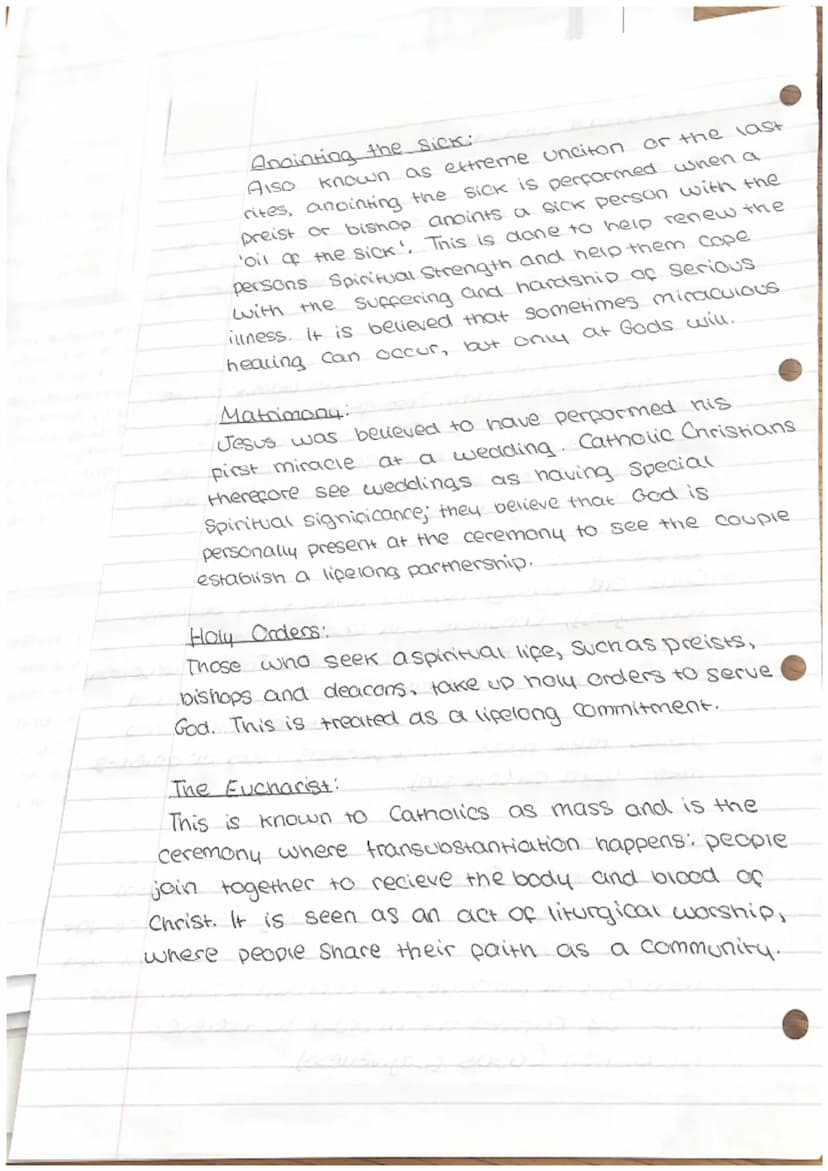 Anointing the Sick:
Also known as extreme unciton or the last
rites, anointing the sick is performed when a
preist or bishop anoints a sick person with the
'oil of the sick'. This is done to help renew the
persons Spiritual Strength and help them cope
with the suffering and hardship of serious
illness. It is believed that sometimes miraculous
healing can occur, but only at Gods will.
Matrimony:
Jesus was believed to have performed his
first miracle at a wedding. Catholic Christians
therefore see weddings as having special
Spiritual significance; they believe that God is
personally present at the ceremony to see the couple
establish a lifelong partnership.
Holy Orders:
Those who seek a spiritual life, such as preists,
bishops and deacons, take up holy orders to serve
God. This is treated as a lifelong commitment.
The Eucharist:
This is known to Catholics as mass and is the
ceremony where transubstantiation happens: people
join together to recieve the body and blood of
Christ. It is seen as an act of liturgical worship,
where people share their faith as a community.